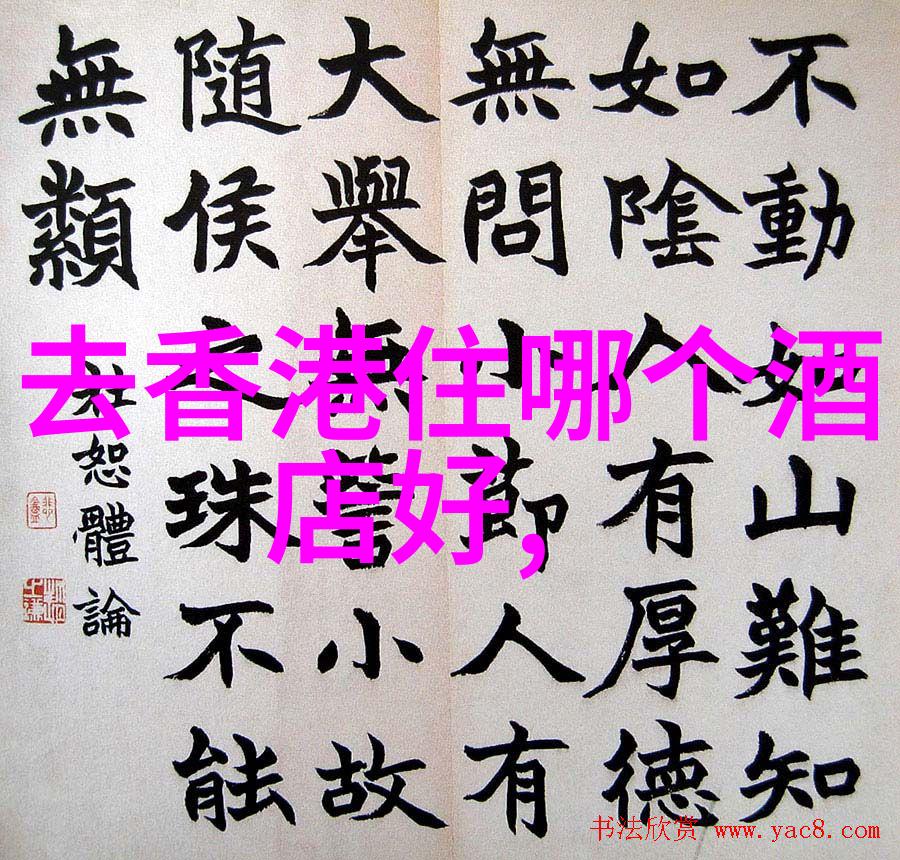 不動如山難知
如陰人有厚德
無問小節人有
大舉小故
隨侯之珠不能
無纇
杜恕體論
去香港住哪个酒
店好,
书法欣赏 www.yac8.com